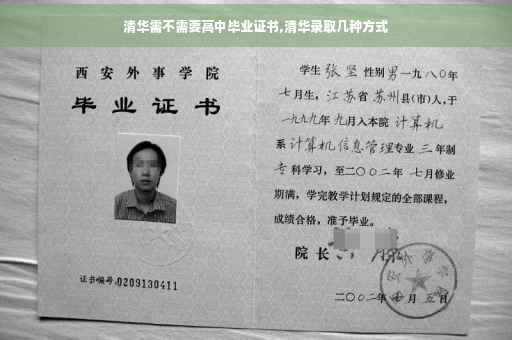 清华需不需要高中毕业证书,清华录取几种方式
西安外事学院
毕业证书
证书编号:0209130411
学生 张坚 性别 男 一九八〇年
七月生, 江苏省 苏州县(市)人,于
一九九九年 九月入本院 计算机
系 计算机信息管理专业 三 年制
专科学习, 至二〇〇二年 七月修业
期满, 学完教学计划规定的全部课程,
成绩合格, 准予毕业。
院长
二〇〇二年 七月 五日